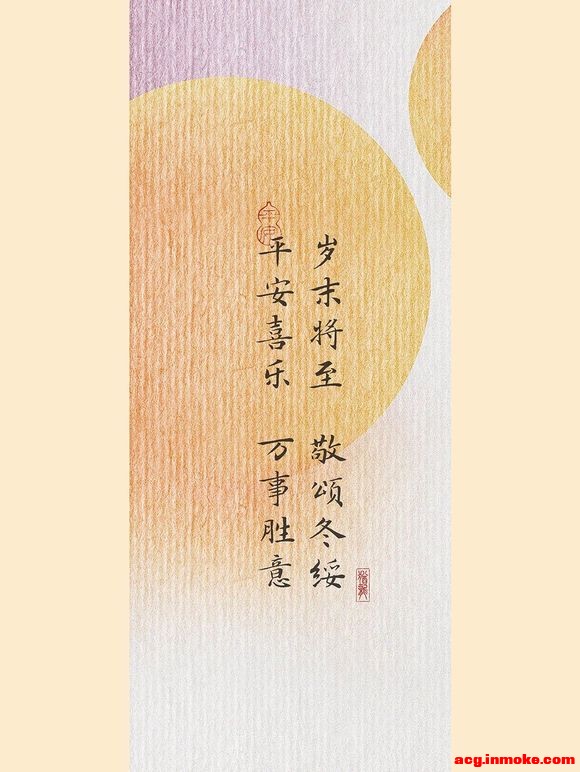 岁末将至 敬颂冬绥
平安喜乐 万事胜意
acg.inmoke.com